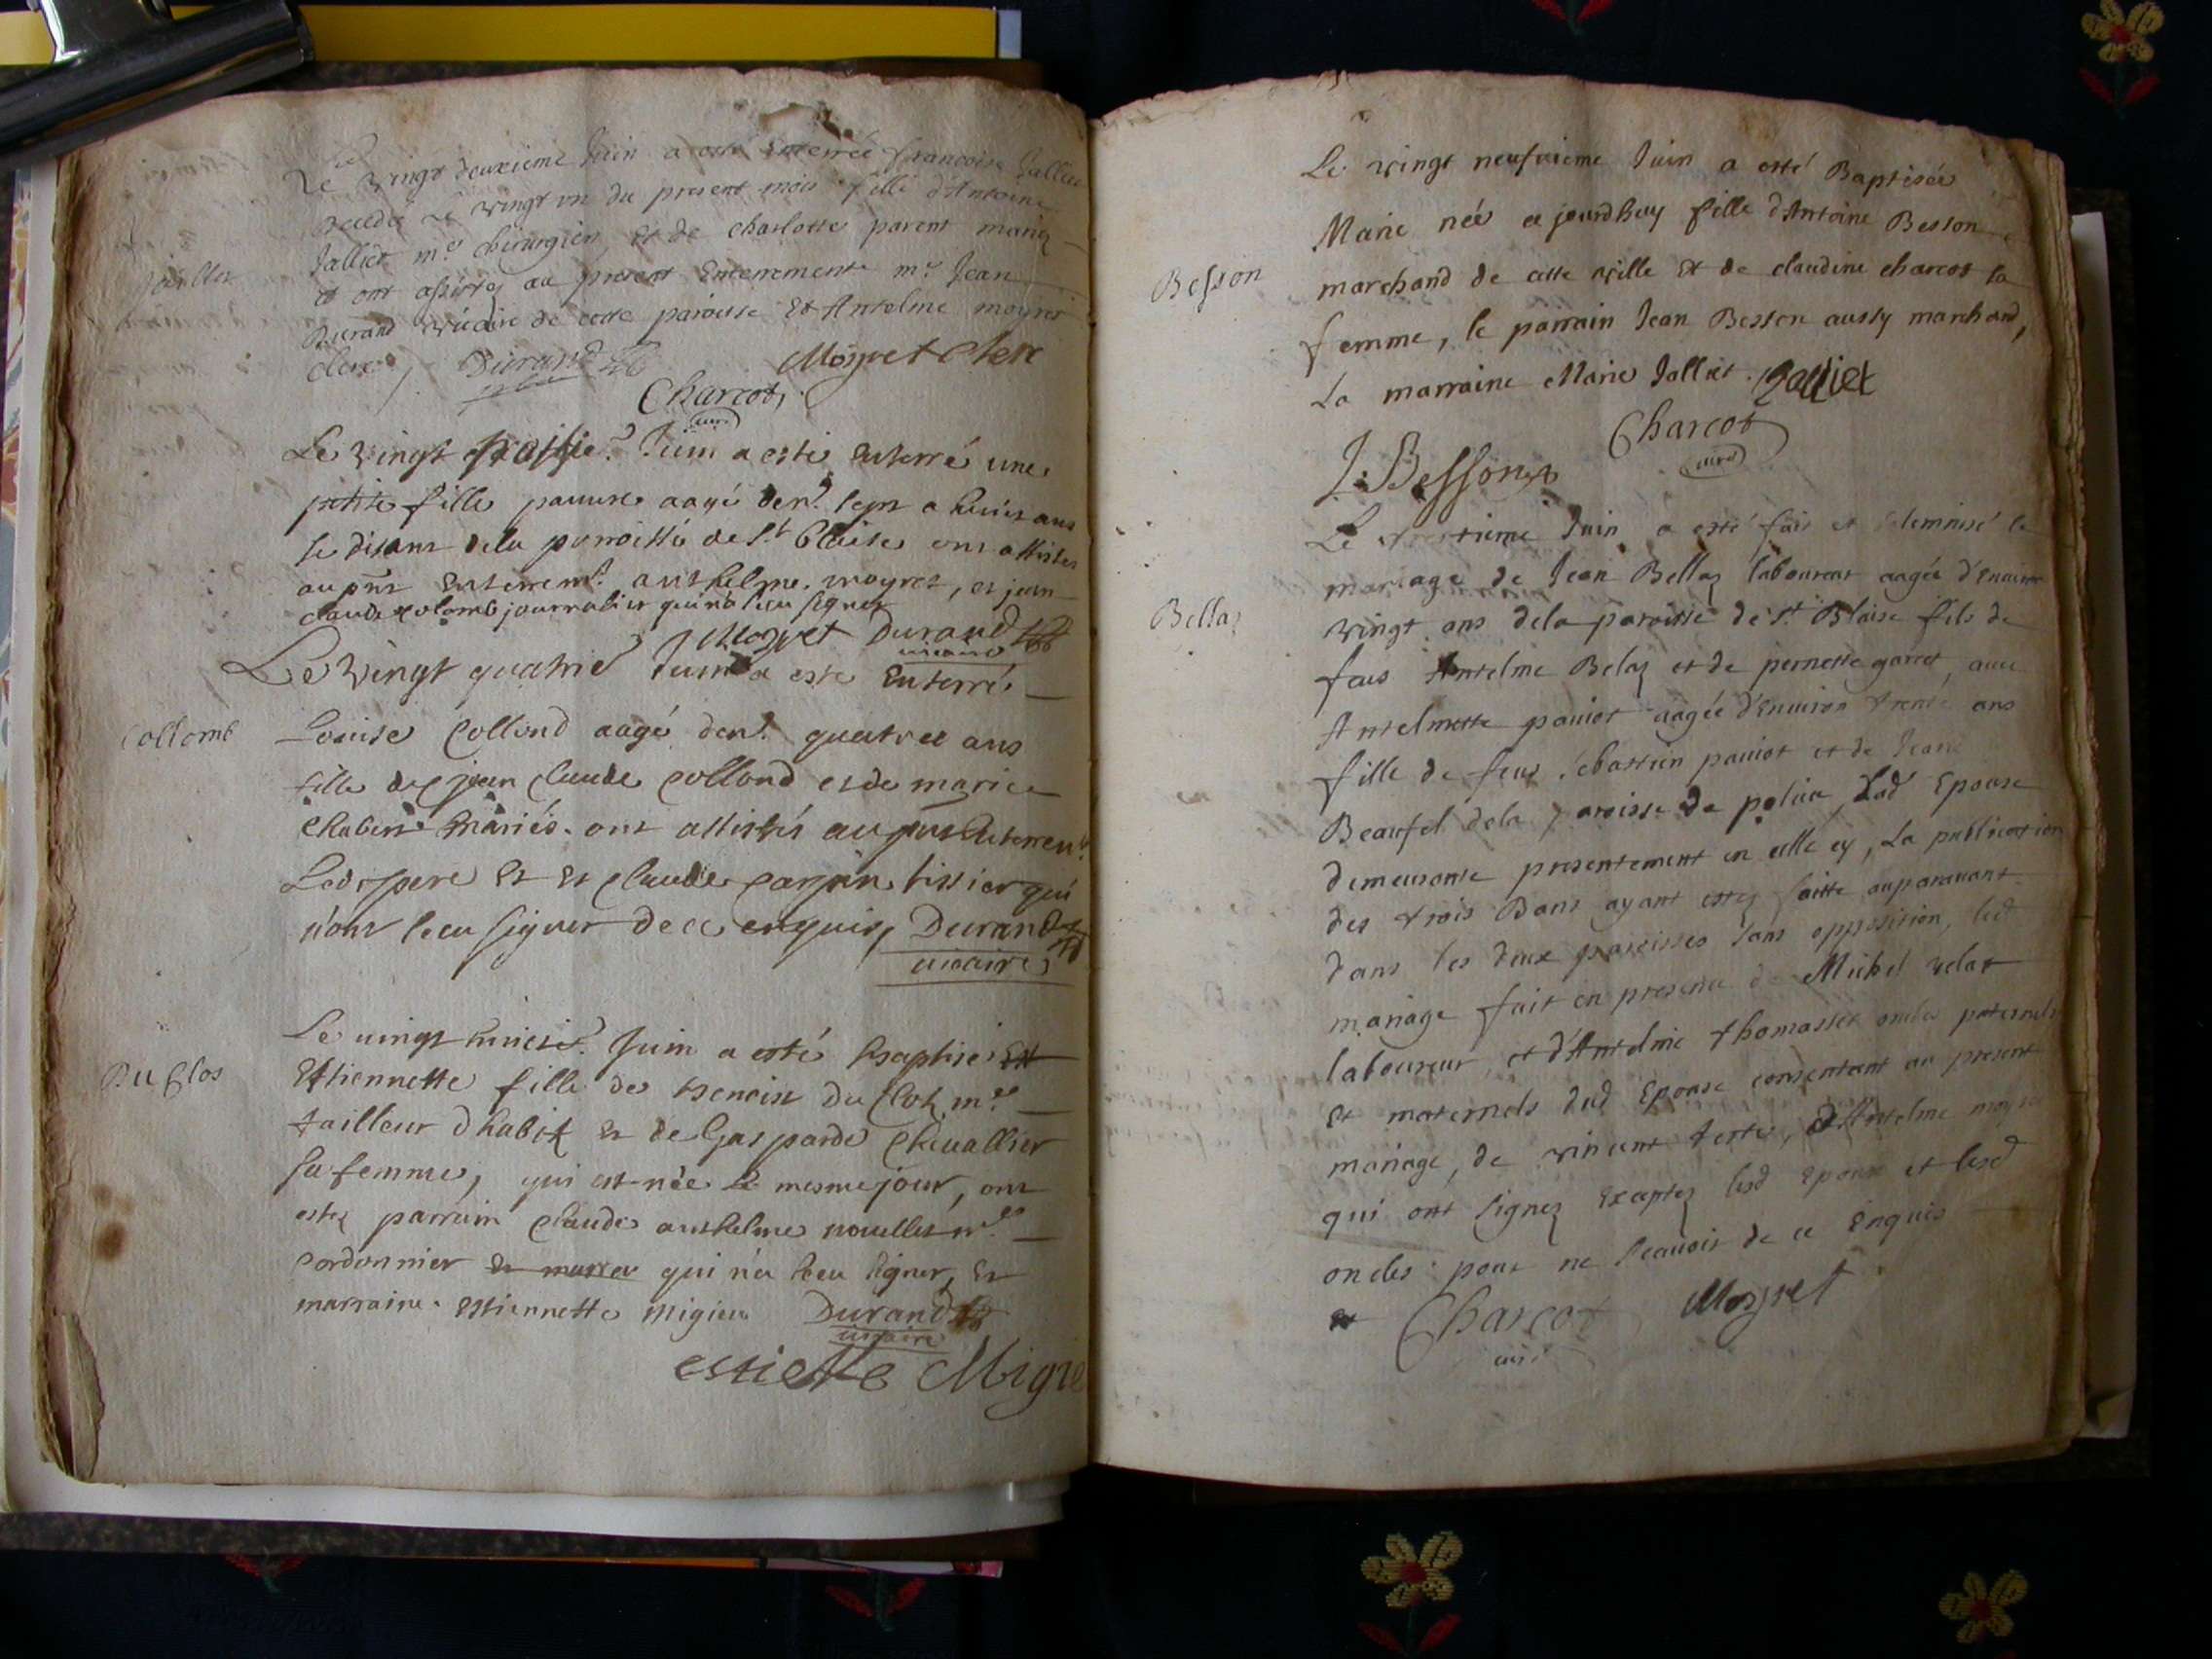 Le vingt deuxieme Juin a esté Enterrée francoise Jalliet
decedée le vingt un du present mois fille d'Antoine
Jalliet
Jalliet mᵉ chirurgien et de charlotte parent mariez
et ont assistez au present Enterrement mʳᵉ Jean
Durand vicaire de cette paroisse Et Antelme moyret
clerc Durand Moyret clerc
Charcot
curé
Le vingt Juin a esté enterré une
petite fille pauure aagé denᵛ. sept a huict ans
se disant dela parroisse de Sᵗ Blaise ont assistes
au pnt enterremᵗ. anthelme moyret, et jean
claude colomb journalier qui n'a sceu signer
Moyret Durand
vicaire
Le vingt quatrie Juin a esté Enterré
Collomb
Louise Collond aagé denᵛ. quatres ans
fille de jean claude collond et de marie
mariés. ont assistés au pnt Enterremᵗ.
Led. pere Et Et claude tissier qui
n'ont sceu signer de ce enquis, Durand
vicaire
Le vingt huictie. Juin a esté Baptise Est
Du Clos
Estiennette fille de Benoist Du Clos mᵉ
tailleur d'habit Et de Gasparde Cheuallier
sa femme, qui est née le mesme jour, ont
estez parrain Claude anthelme nouellet mᵉ
Cordonnier et marra qui n'a sceu signer, Et
marraine Estiennette Migieu Durand
vicaire
estiette Migie
Le vingt neufuieme Juin a esté Baptisée
Marie née ce jourdhuy fille d'Antoine Besson
Besson
marchand de cette ville Et de claudine charcot sa
femme, le parrain Jean Besson aussy marchand,
La marraine Marie Jalliet. Jalliet
Charcot
curé
J. Besson
Le trentieme Juin a esté fait et solemnisé le
mariage de Jean Bellaz laboureur aagée d'enuiron
Bellaz
vingt ans dela paroisse de Sᵗ Blaise fils de
feus Antelme Belaz et de pernette garret, auec
Antelmette pauiot aagée d'enuiron trente ans
fille de feus sebastien pauiot et de Jeane
Beaufel dela paroisse de polieu, Lad Epouse
demeurante presentement en celle cy, La publication
des trois Bans ayant estez faitte auparauant
dans les deux paroisses sans opposition, led
mariage fait en presence de Michel velat
laboureur, et d'Antelme thomasset oncles paternels
Et maternels dud Epouse consentant au present
mariage, de vincent teste, d'Antelme moyret
qui ont signez exceptez lesd Epoux et lesd
oncles pour ne scauoir de ce Enquis
Et Charcot Moyret
curé